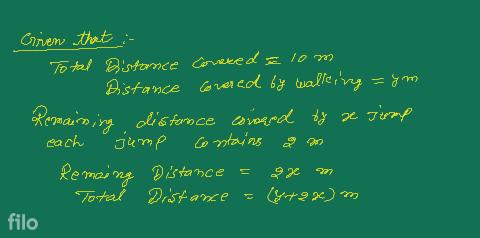 Given that :-
Total Distance Covered = 10 m
Distance covered by walking = y m
Remaining distance covered by x jump
each jump contains 2 m
Remaing Distance = 2x m
Total Distance = (y+2x) m
filo